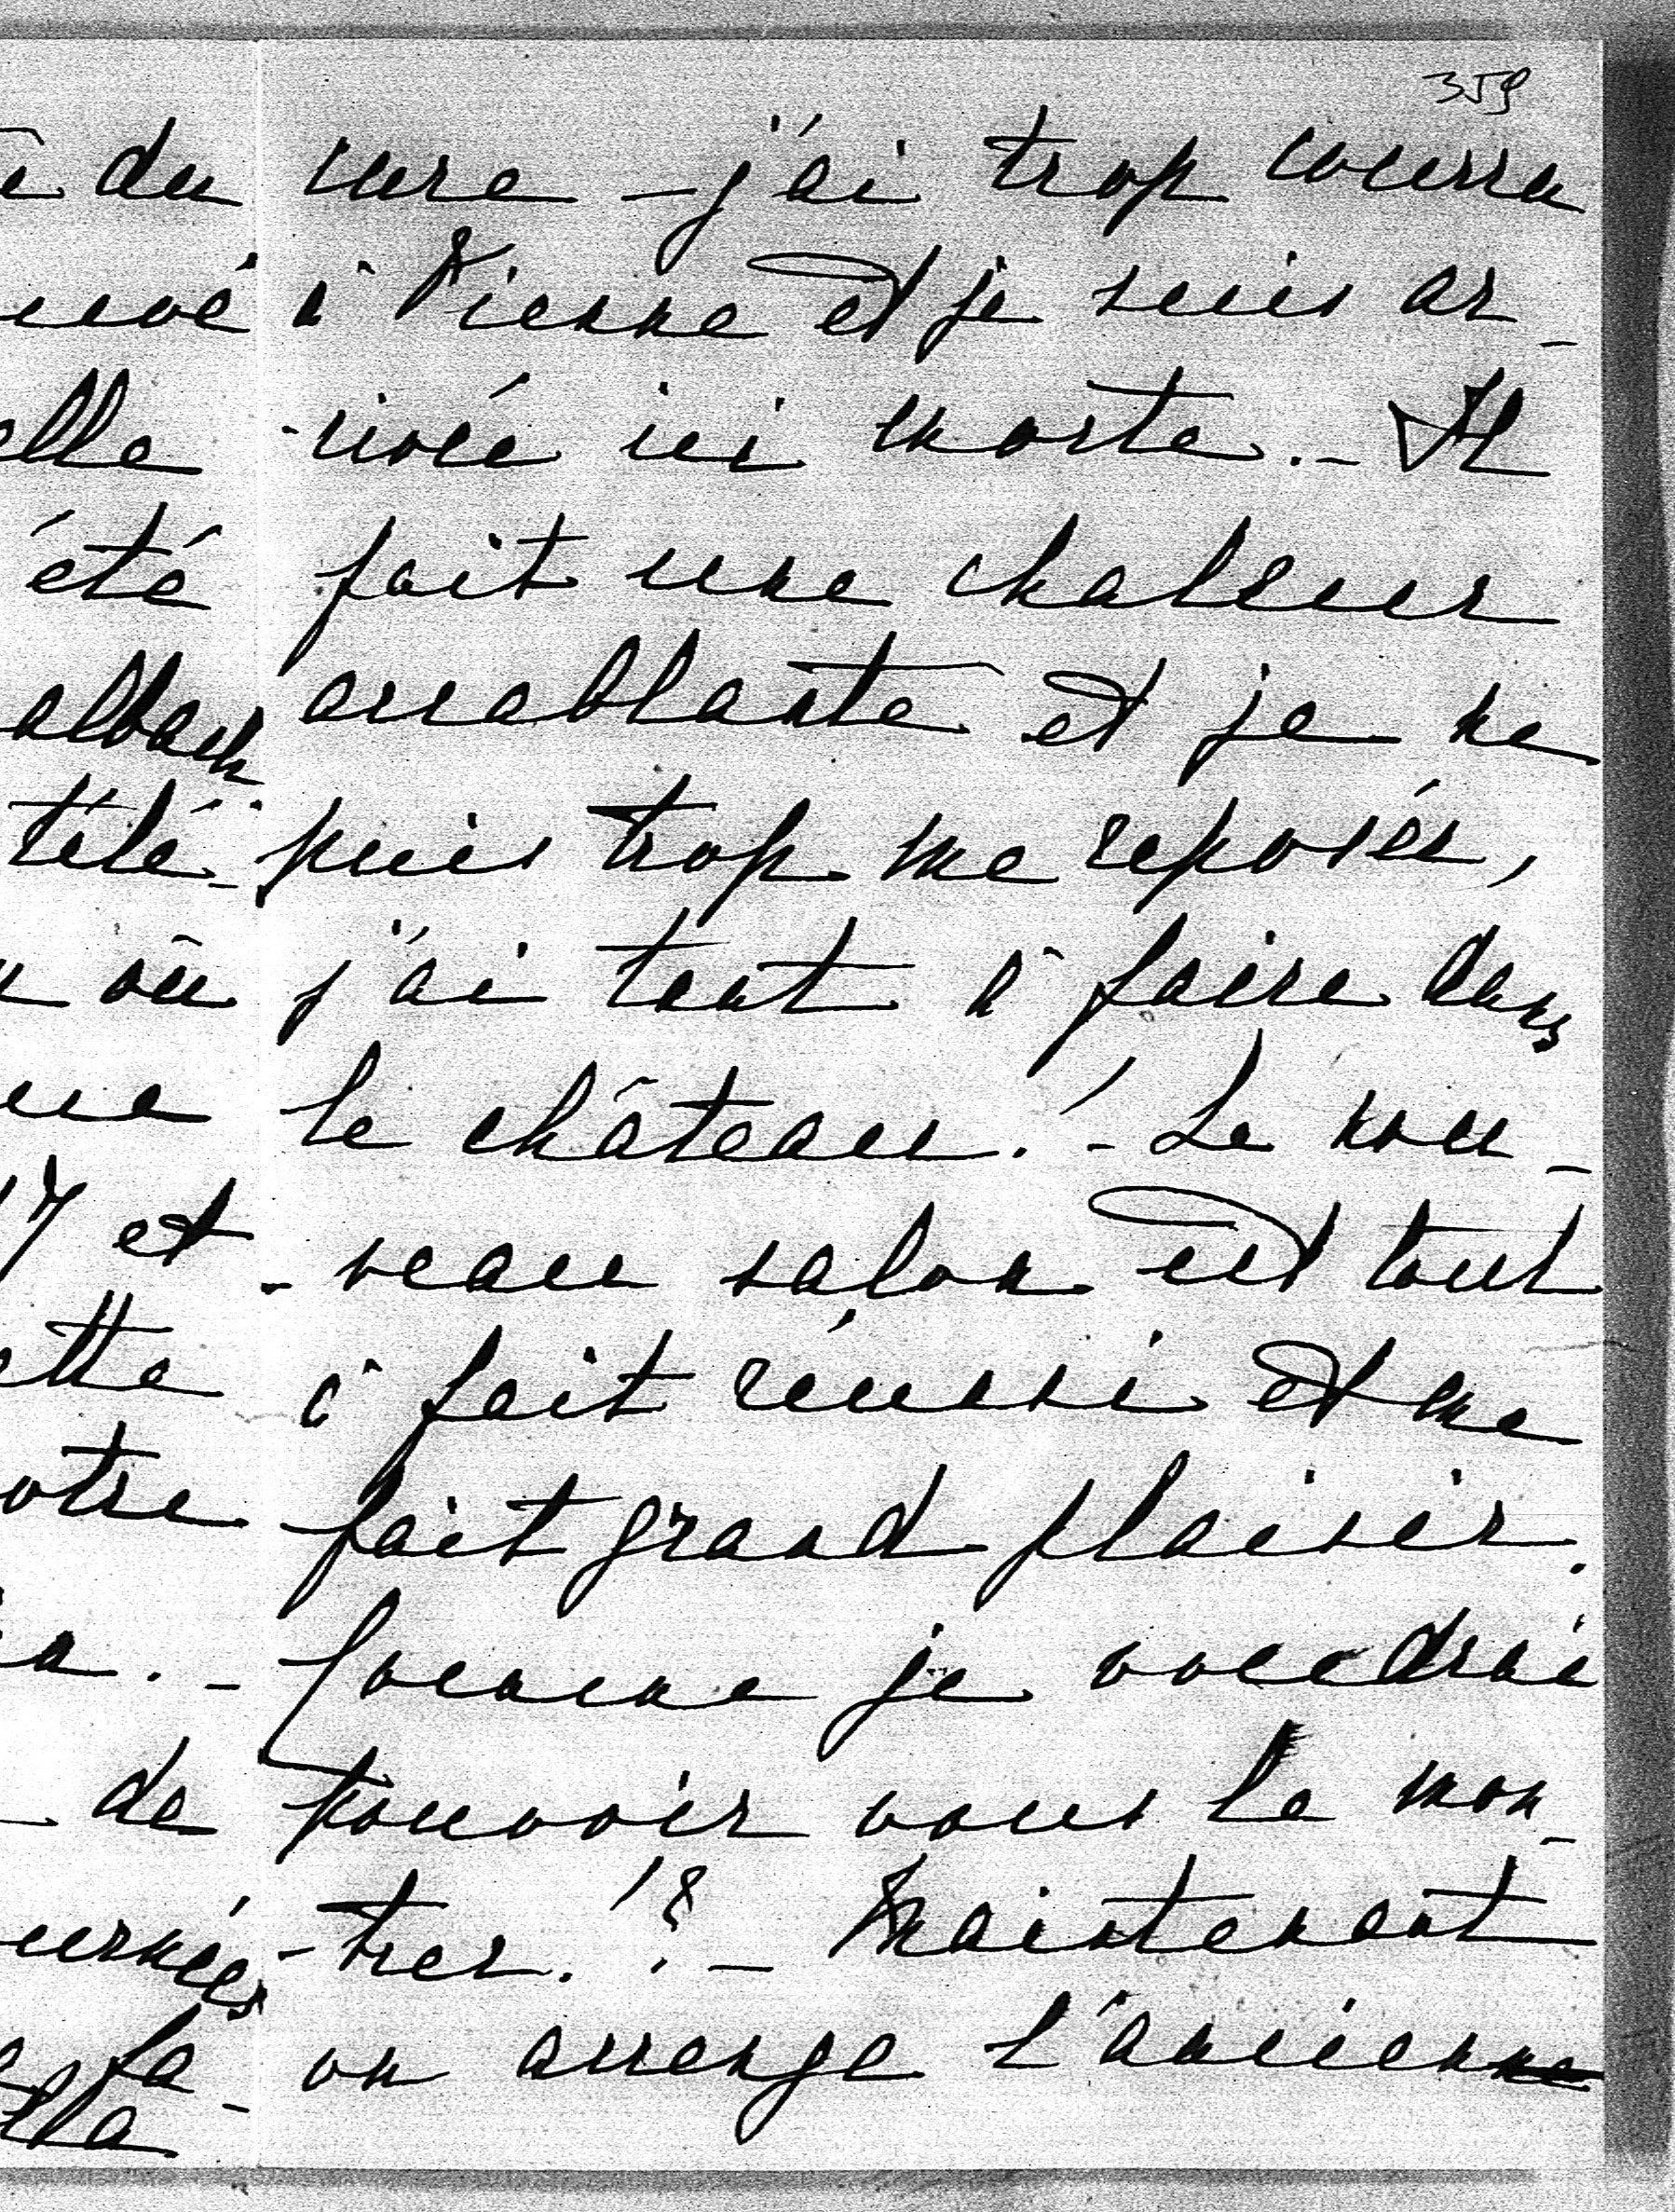 359
du cure – j'ai trop courru
à Vienne et je suis ar-
-rivée ici morte. – Il
fait une chaleur
accablante et je ne
puis trop me reposér,
j'ai tant à faire dans
le château! – Le nou-
-veau salon est tout
à fait réussi et me
fait grand plaisir.
Comme je voudrai
pouvoir vous le mon-
-trer!? – Maintenant
on arrenge l'ancienne
elle
été
télé-
où
et
de